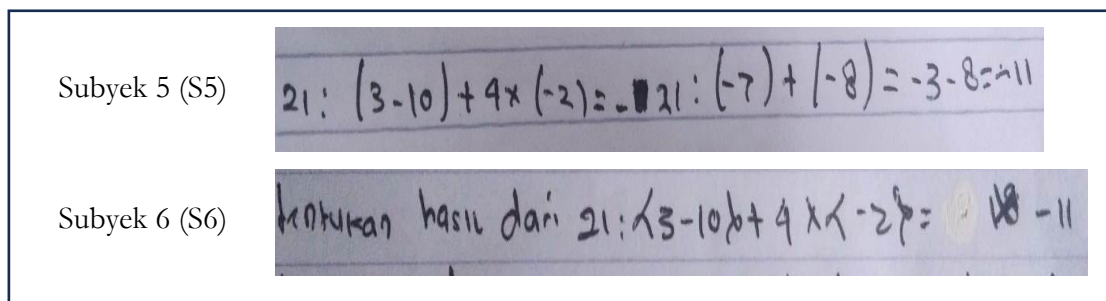 Subyek 5 (S5)
21 : (3-10) + 4 x (-2) = - 21 : (-7) + (-8) = -3 - 8 = -11
Subyek 6 (S6)
tentukan hasil dari 21 : (3-10) + 4 x (-2) = -11